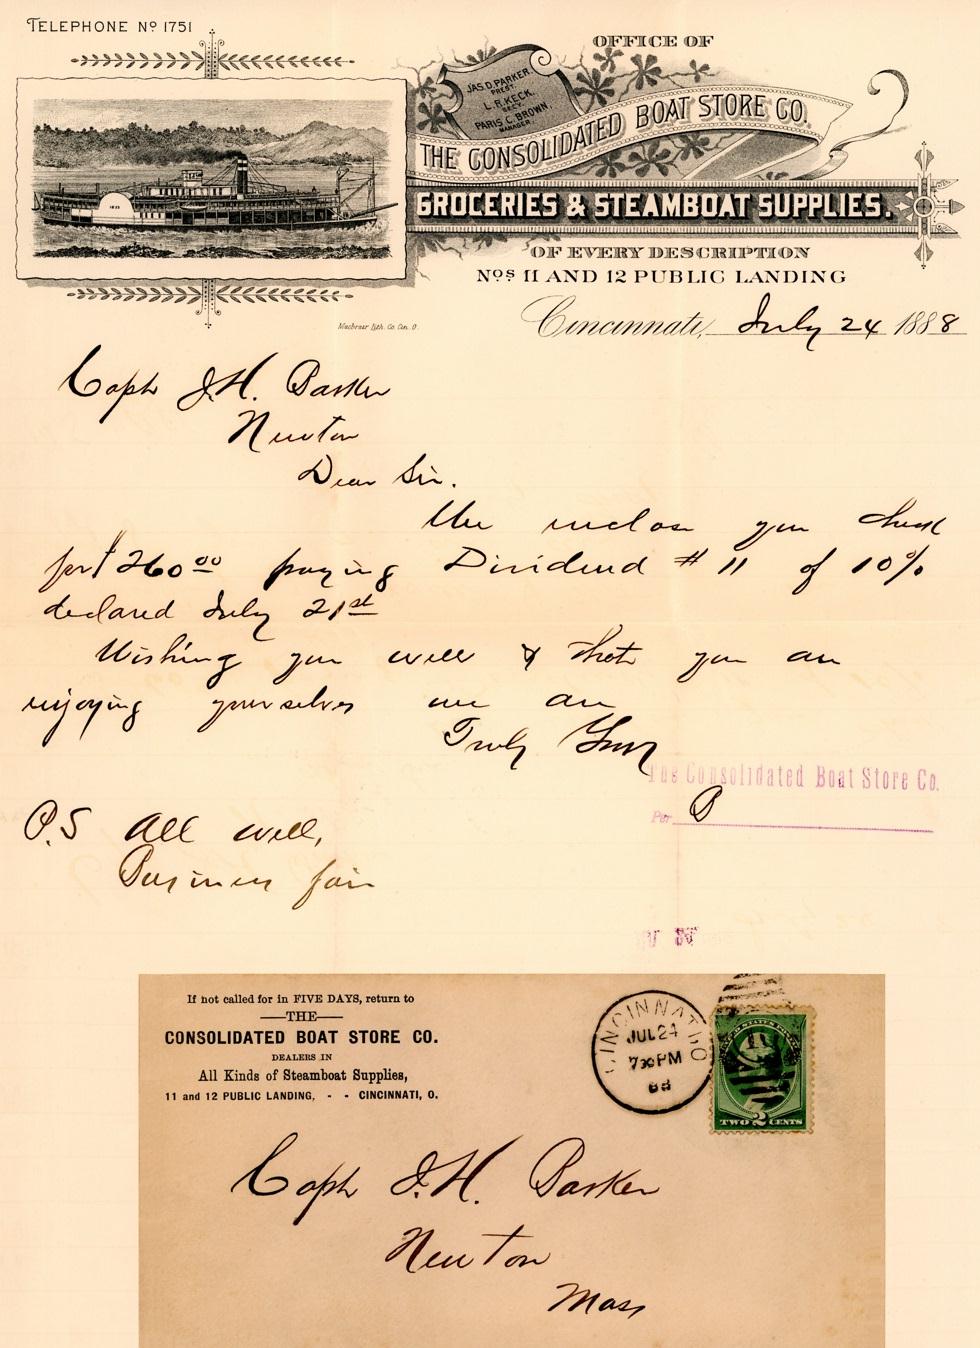 TELEPHONE Nº 1751
OFFICE OF
JAS. D. PARKER
PREST.
L. R. KECK.
SECY.
PARIS C. BROWN
MANAGER
THE CONSOLIDATED BOAT STORE CO.
GROCERIES & STEAMBOAT SUPPLIES.
OF EVERY DESCRIPTION
Nos. 11 AND 12 PUBLIC LANDING
Macbrair Lith. Co. Cin. O.
Cincinnati, July 24 1888
Capt J.H. Barker
Newton
Dear Sir.
We enclose you check
for $260.00 paying Dividend # 11 of 10%
declared July 21st
Wishing you well & that you are
enjoying yourselves we are
Truly Yours
The Consolidated Boat Store Co.
Per B
P.S All well,
Business fair
If not called for in FIVE DAYS, return to
THE
CONSOLIDATED BOAT STORE CO.
DEALERS IN
All Kinds of Steamboat Supplies,
11 and 12 PUBLIC LANDING, - - CINCINNATI, O.
CINCINNATI O
JUL 24
7 30 PM
88
UNITED STATES POSTAGE
TWO 2 CENTS
Capt J.H. Barker
Newton
Mass